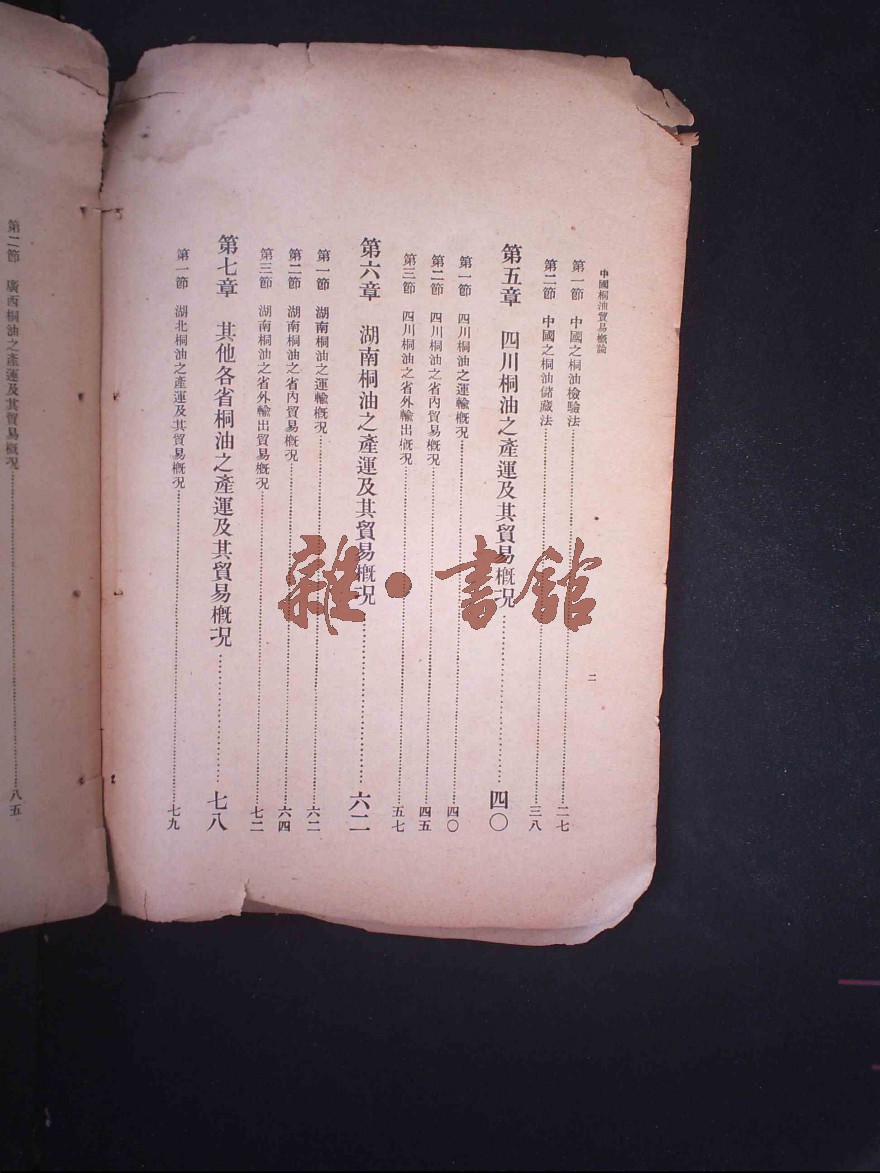 中國桐油貿易概論
二
第一節　中國之桐油檢驗法……二七
第二節　中國之桐油儲藏法……三八
第五章　四川桐油之產運及其貿易概况……四〇
第一節　四川桐油之運輸概况……四〇
第二節　四川桐油之省內貿易概况……四五
第三節　四川桐油之省外輸出概况……五七
第六章　湖南桐油之產運及其貿易概况……六二
第一節　湖南桐油之運輸概况……六二
第二節　湖南桐油之省內貿易概况……六四
第三節　湖南桐油之省外輸出貿易概况……七二
第七章　其他各省桐油之產運及其貿易概况……七八
第一節　湖北桐油之產運及其貿易概况……七九
第二節　廣西桐油之產運及其貿易概况……八五
雜·書館